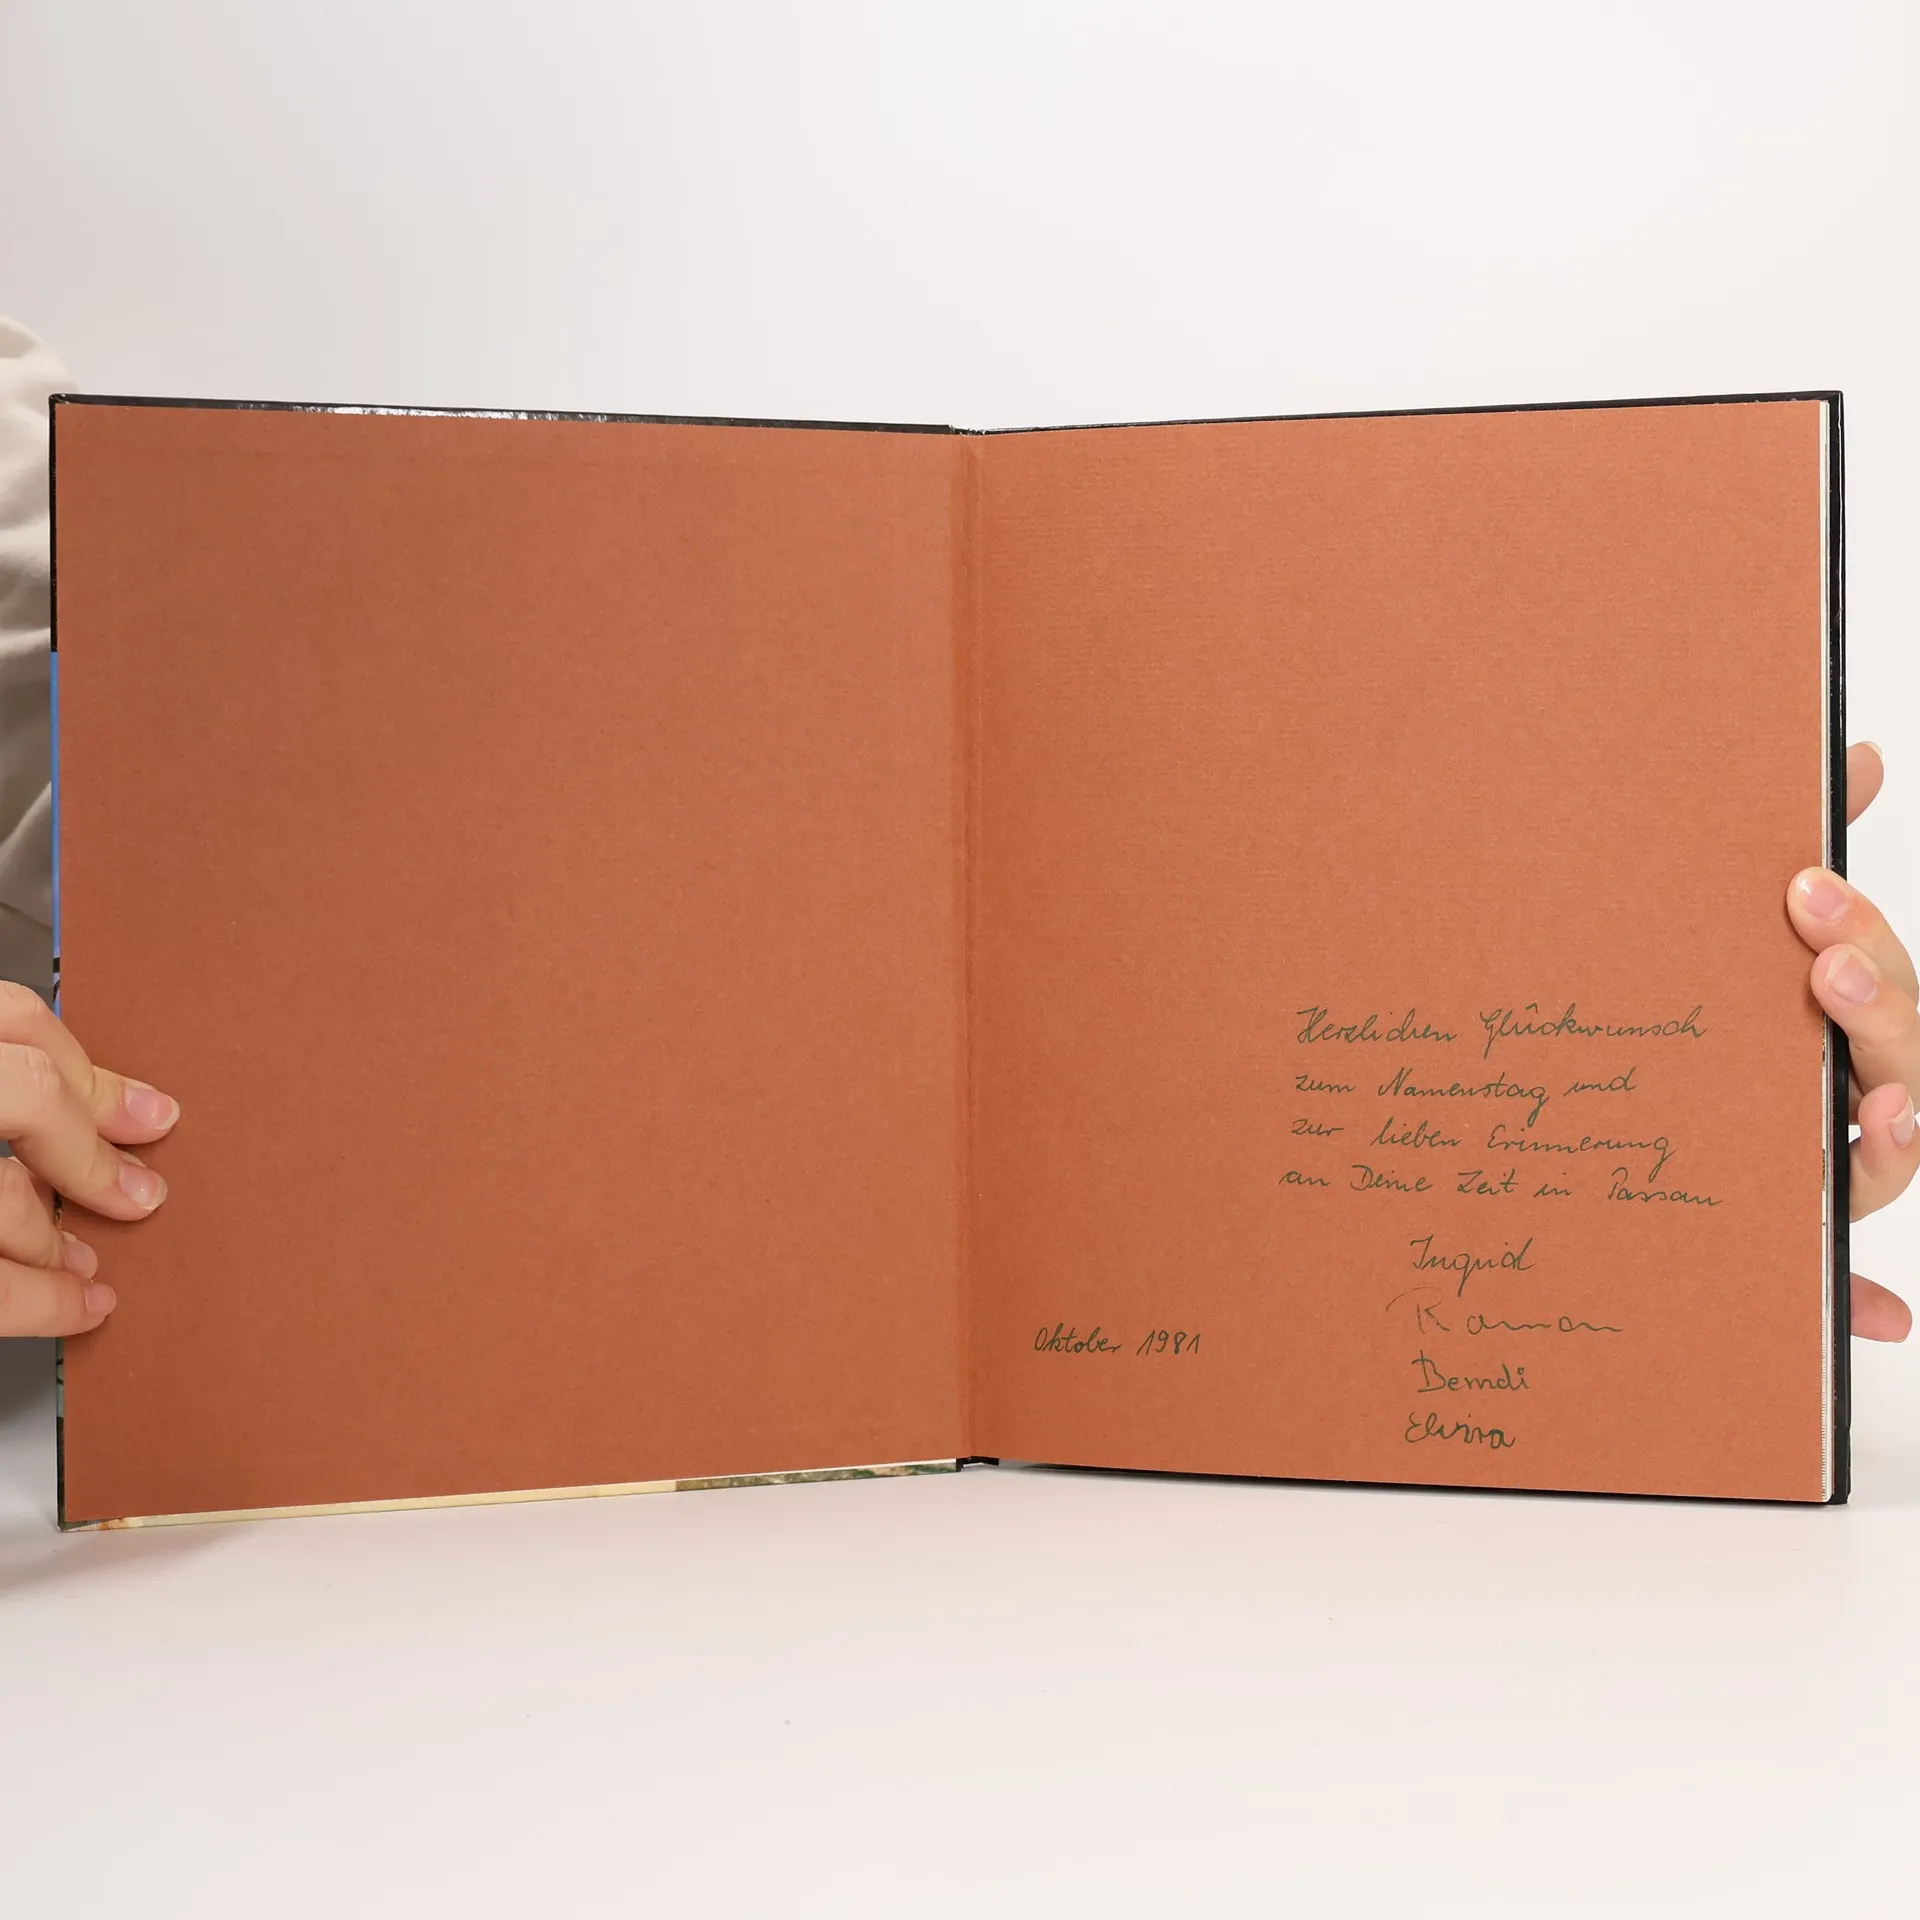 Herzlichen Glückwunsch
zum Namenstag und
zur lieben Erinnerung
an Deine Zeit in Passau
Ingrid
Oktober 1981
Berndi
Elvira